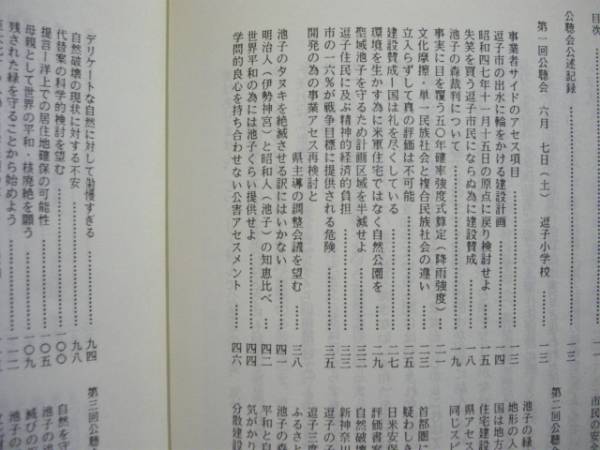 目次
公聴会公述記録 一三
第一回公聴会 六月 七日(土) 逗子小学校 一三
事業者サイドのアセス項目 一三
逗子市の出水に輪をかける建設計画 一四
昭和四七年十一月十五日の原点に戻り検討せよ 一五
失笑を買う逗子市民にならぬ為に建設賛成 一七
池子の森裁判について 一九
事実に目を覆う五〇年確率強度式算定(降雨強度) 二一
文化摩擦・単一民族社会と複合民族社会の違い
立入らずして真の評価は不可能
建設賛成—国は礼を尽くしている 二七
環境を生かす為に米軍住宅ではなく自然公園を 二九
聖域池子を守るため計画区域を半減せよ
逗子住民に及ぶ精神的経済的負担
市の一六%が戦争目標に提供される危険 三五
開発の為の事業アセス再検討と
県主導の調整会議を望む 三八
池子のタヌキを絶滅させる訳にはいかない 四一
明治人(伊勢神宮)と昭和人(池子)の知恵比べ 四二
世界平和の為には池子くらい提供せよ 四四
学問的良心を持ち合わせない公害アセスメント 四六
デリケートな自然に対して傲慢すぎる 九四
自然破壊の現状に対する不安 九八
代替案の科学的検討を望む 一〇〇
提言—洋上での居住地確保の可能性 一〇五
母親として世界の平和・核廃絶を願う 一〇九
残された緑を守ることから始めよう 一一二
市民の安全
第二回公聴
池子の緑
地形の人
国は地方
住宅建設
県アセス
同じスピ
首都圏に
疑わしき
日米安保
評価書案
自然破壊
新神奈川
逗子の子
逗子三度
ふるさと
池子の森
平和と自
気がかり
分散建設
第三回公聴会
自然を守
池子の
滅びの